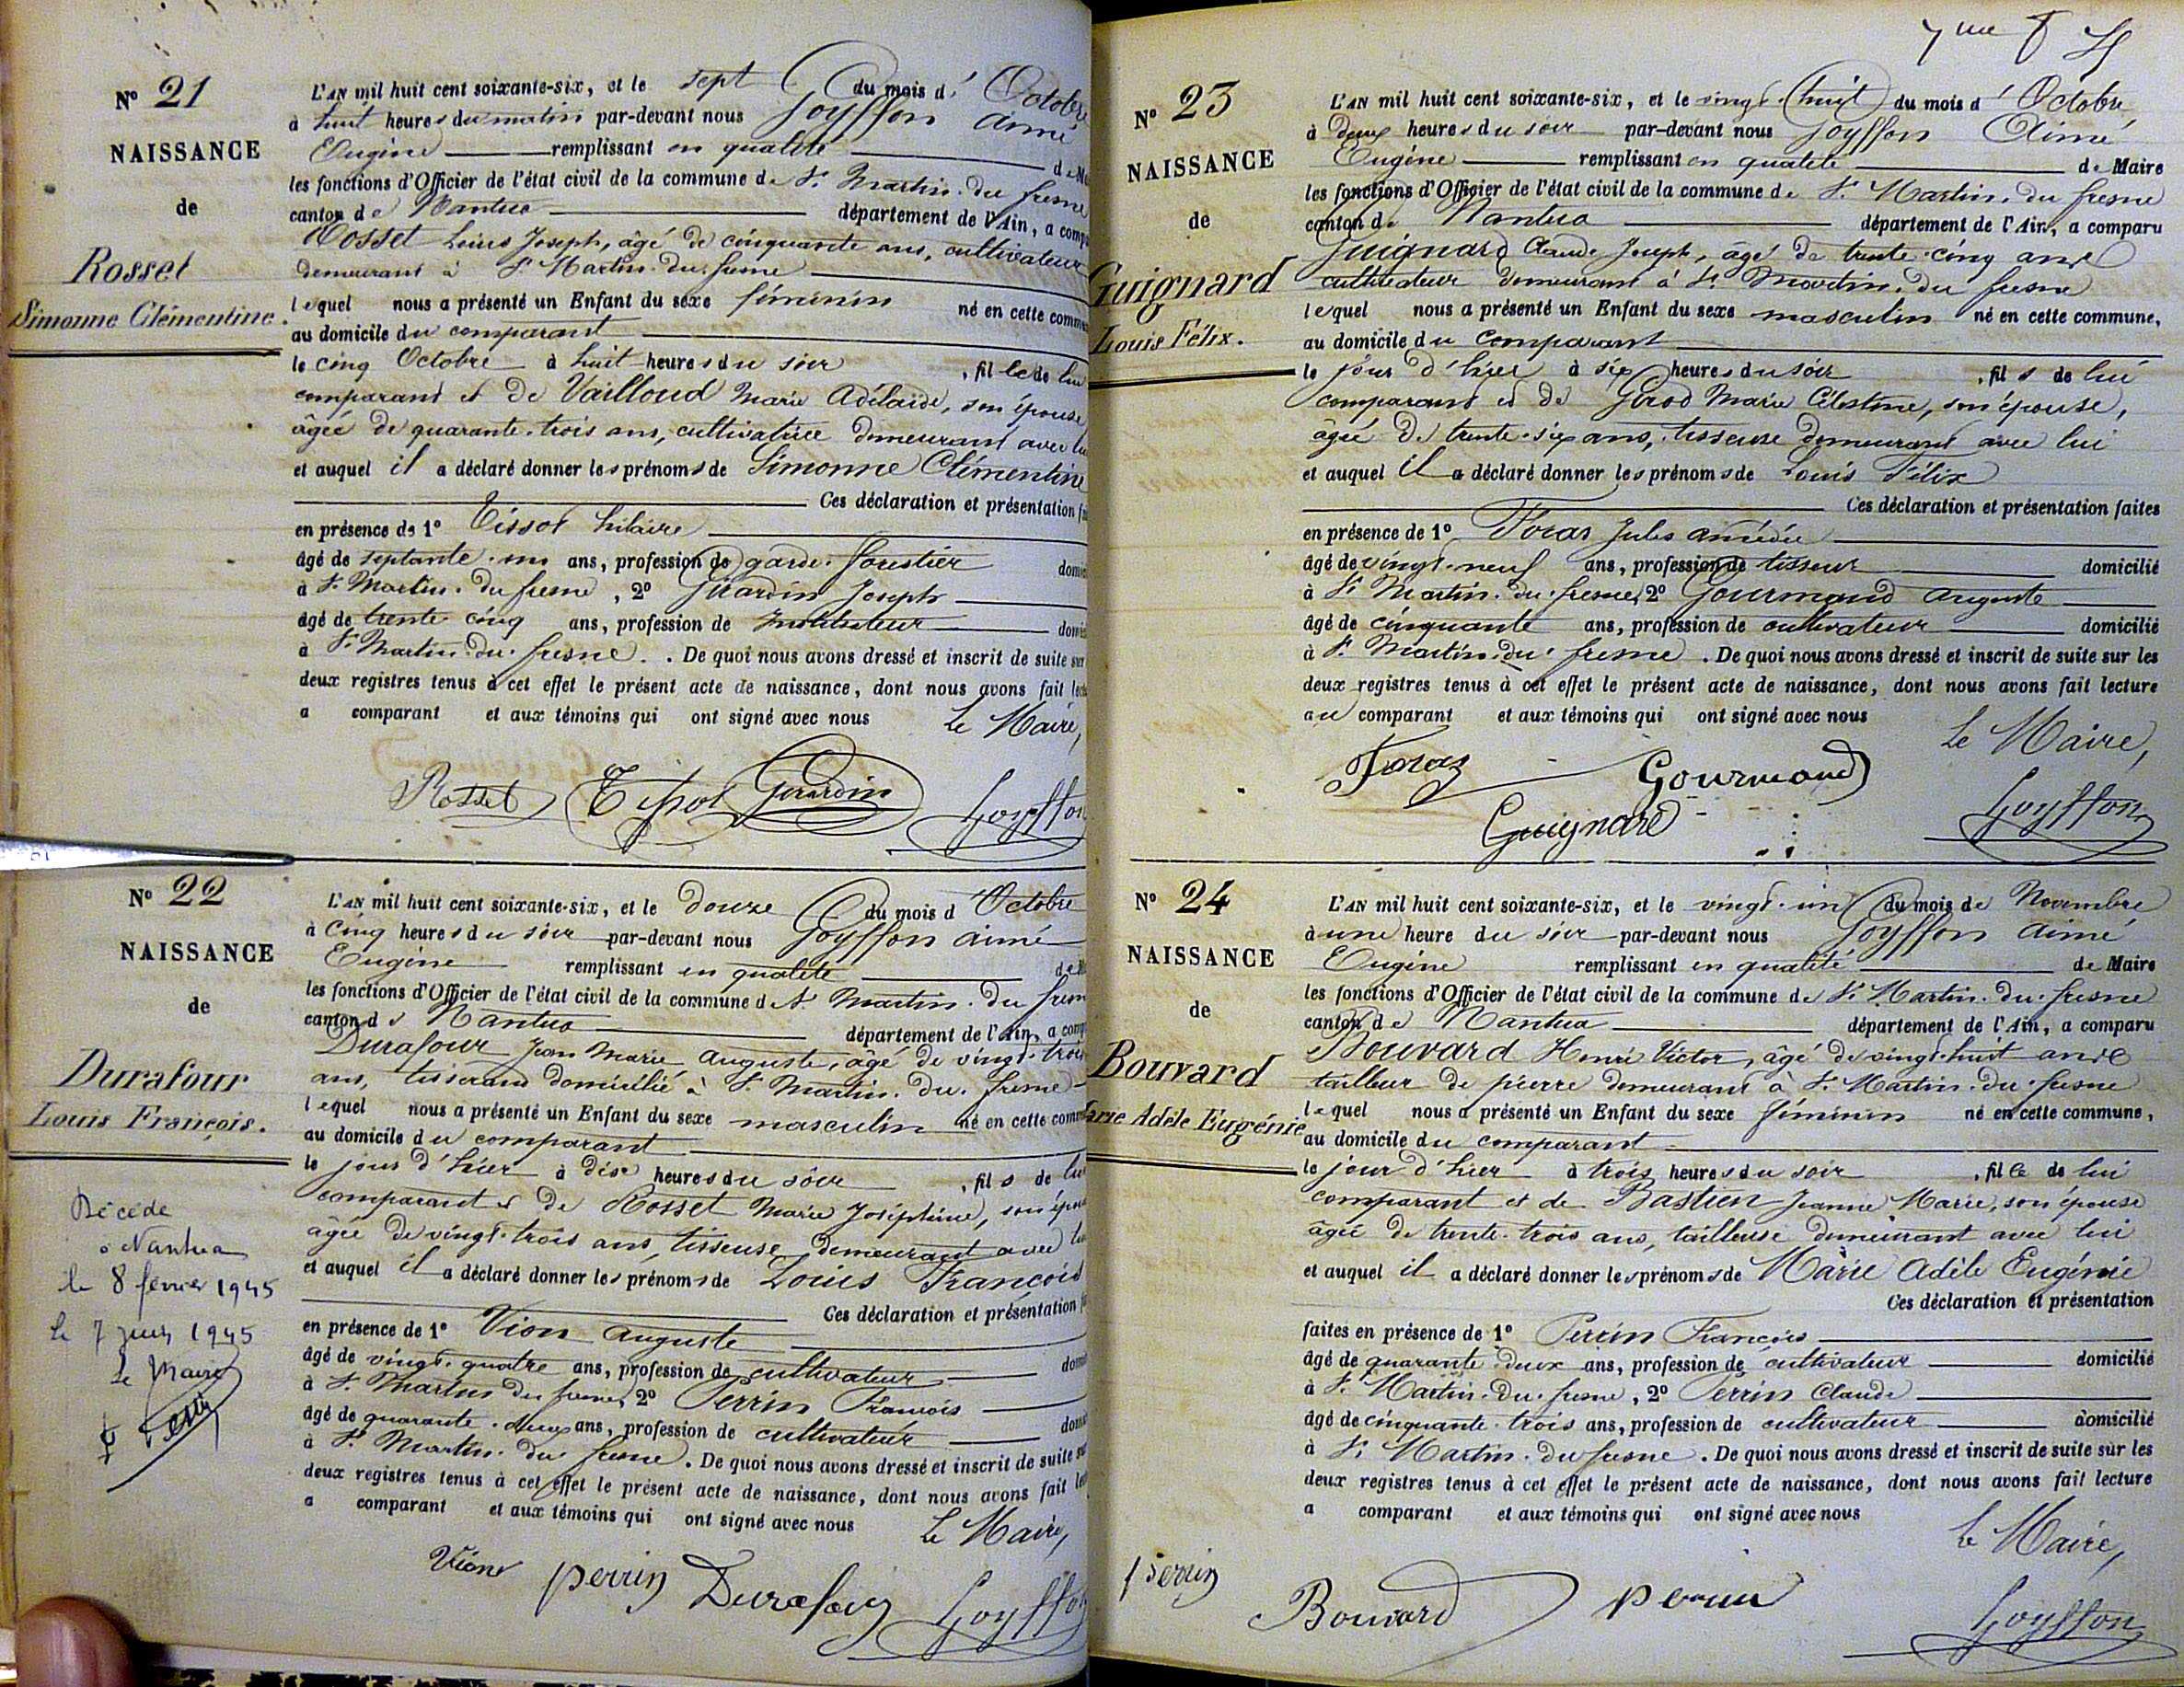 N° 21
NAISSANCE
de
Rosset
Simonne Clémentine.
L'AN mil huit cent soixante-six, et le sept du mois d' Octobre
à huit heures du matin par-devant nous Goyffon aimé
Eugène remplissant en qualité
les fonctions d'Officier de l'état civil de la commune de St. Martin du fresne
canton de Nantua département de l'Ain, a
Rosset Louis Joseph, âgé de cinquante ans, cultivateur
demeurant à St Martin du fresne
lequel nous a présenté un Enfant du sexe féminin né en cette
au domicile du comparant
le cinq Octobre à huit heures du soir , fille de lui
comparant et de Vailloud Marie Adélaïde, son épouse
âgée de quarante-trois ans, cultivatrice demeurant avec
et auquel il a déclaré donner les prénoms de Simonne Clémentine
Ces déclaration et présentation
en présence de 1° Tissot hilaire
âgé de septante-un ans, profession de garde-forestier
à St. Martin du fresne, 2° Girardin Joseph
âgé de trente cinq ans, profession de Instituteur
à St Martin du fresne. . De quoi nous avons dressé et inscrit de suite sur
deux registres tenus à cet effet le présent acte de naissance, dont nous avons fait
a comparant et aux témoins qui ont signé avec nous Le Maire,
Rosset Tissot Girardin Goyffon
N° 22
NAISSANCE
de
Durafour
Louis François.
Décédé
à Nantua
le 8 février 1945
le 7 juin 1945
Le Maire
L'AN mil huit cent soixante-six, et le douze du mois d' Octobre
à cinq heures du soir par-devant nous Goyffon aimé
Eugène remplissant en qualité
les fonctions d'Officier de l'état civil de la commune de St Martin du
canton de Nantua département de l'Ain, a
Durafour Jean Marie auguste, âgé de vingt-trois
ans, tisserand domicilié à St Martin du fresne
lequel nous a présenté un Enfant du sexe masculin né en cette
au domicile du comparant
le jour d'hier à dix heures du soir , fils de lui
comparant et de Rosset Marie Joséphine, son
âgée de vingt-trois ans, tisseuse demeurant avec
et auquel il a déclaré donner les prénoms de Louis François
Ces déclaration et présentation
en présence de 1° Vion auguste
âgé de vingt-quatre ans, profession de cultivateur
à St. Martin du fresne, 2° Perrin François
âgé de quarante-deux ans, profession de cultivateur
à St. Martin du fresne. De quoi nous avons dressé et inscrit de suite
deux registres tenus à cet effet le présent acte de naissance, dont nous avons fait
a comparant et aux témoins qui ont signé avec nous Le Maire,
Vion Perrin Durafour Goyffon
N° 23
NAISSANCE
de
Guignard
Louis Félix.
L'AN mil huit cent soixante-six, et le vingt-huit du mois d' Octobre
à deux heures du soir par-devant nous Goyffon Aimé
Eugène remplissant en qualité de Maire
les fonctions d'Officier de l'état civil de la commune de St. Martin du fresne
canton de Nantua département de l'Ain, a comparu
Guignard Claude Joseph, âgé de trente-cinq ans
cultivateur demeurant à St. Martin du fresne
lequel nous a présenté un Enfant du sexe masculin né en cette commune,
au domicile du comparant
le jour d'hier à six heures du soir , fils de lui
comparant et de Girod Marie Célestine, son épouse,
âgée de trente-six ans, tisseuse demeurant avec lui
et auquel il a déclaré donner les prénoms de Louis Félix
Ces déclaration et présentation faites
en présence de 1° Foraz Jules amédée
âgé de vingt-neuf ans, profession de tisseur domicilié
à St Martin du fresne, 2° Gourmand auguste
âgé de cinquante ans, profession de cultivateur domicilié
à St. Martin du fresne. De quoi nous avons dressé et inscrit de suite sur les
deux registres tenus à cet effet le présent acte de naissance, dont nous avons fait lecture
au comparant et aux témoins qui ont signé avec nous
Le Maire,
Foraz Gourmand
Guignard Goyffon
N° 24
NAISSANCE
de
Bouvard
Marie Adèle Eugénie
L'AN mil huit cent soixante-six, et le vingt-un du mois de Novembre
à une heure du soir par-devant nous Goyffon aimé
Eugène remplissant en qualité de Maire
les fonctions d'Officier de l'état civil de la commune de St. Martin du fresne
canton de Nantua département de l'Ain, a comparu
Bouvard Henri Victor, âgé de vingt-huit ans
tailleur de pierre demeurant à St. Martin du fresne
lequel nous a présenté un Enfant du sexe féminin né en cette commune,
au domicile du comparant
le jour d'hier à trois heures du soir , fille de lui
comparant et de Bastien Jeanne Marie, son épouse
âgée de trente-trois ans, tailleuse demeurant avec lui
et auquel il a déclaré donner les prénoms de Marie Adèle Eugénie
Ces déclaration et présentation
faites en présence de 1° Perrin François
âgé de quarante deux ans, profession de cultivateur domicilié
à St. Martin du fresne, 2° Perrin Claude
âgé de cinquante-trois ans, profession de cultivateur domicilié
à St. Martin du fresne. De quoi nous avons dressé et inscrit de suite sur les
deux registres tenus à cet effet le présent acte de naissance, dont nous avons fait lecture
a comparant et aux témoins qui ont signé avec nous
Le Maire,
Perrin Bouvard Perrin Goyffon